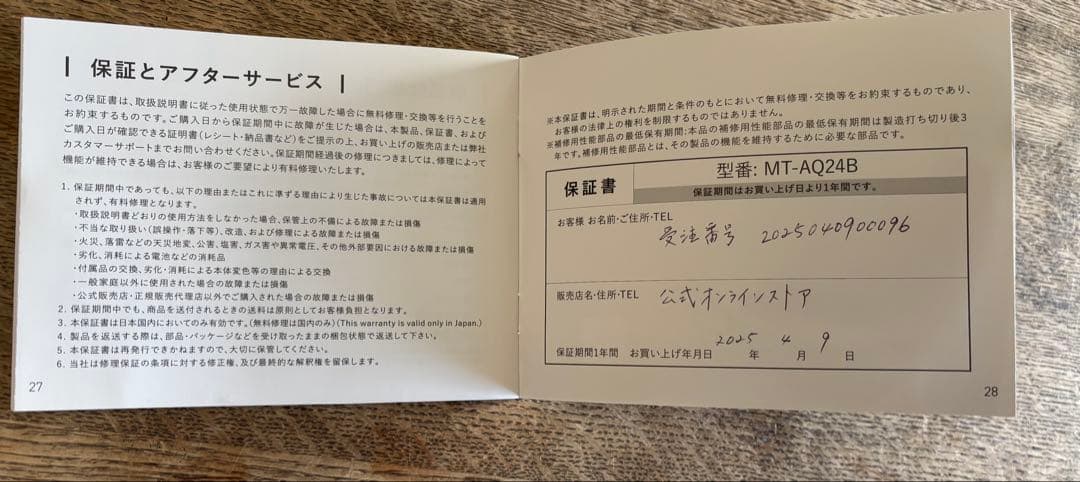 | 保証とアフターサービス |
この保証書は、取扱説明書に従った使用状態で万一故障した場合に無料修理・交換等を行うことを
お約束するものです。ご購入日から保証期間中に故障が生じた場合は、本製品、保証書、および
ご購入日が確認できる証明書(レシート・納品書など)をご提示の上、お買い上げの販売店または弊社
カスタマーサポートまでお問い合わせください。保証期間経過後の修理につきましては、修理によって
機能が維持できる場合は、お客様のご要望により有料修理いたします。
1. 保証期間中であっても、以下の理由またはこれに準ずる理由により生じた事故については本保証書は適用
されず、有料修理となります。
・取扱説明書どおりの使用方法をしなかった場合、保管上の不備による故障または損傷
・不当な取り扱い(誤操作・落下等)、改造、および修理による故障または損傷
・火災、落雷などの天災地変、公害、塩害、ガス害や異常電圧、その他外部要因における故障または損傷
・劣化、消耗による電池などの消耗品
・付属品の交換、劣化・消耗による本体変色等の理由による交換
・一般家庭以外に使用された場合の故障または損傷
・公式販売店・正規販売代理店以外でご購入された場合の故障または損傷
2. 保証期間中でも、商品を送付されるときの送料は原則としてお客様負担となります。
3. 本保証書は日本国内においてのみ有効です。(無料修理は国内のみ)(This warranty is valid only in Japan.)
4. 製品を返送する際は、部品・パッケージなどを受け取ったままの梱包状態で返送して下さい。
5. 本保証書は再発行できかねますので、大切に保管してください。
6. 当社は修理保証の条項に対する修正権、及び最終的な解釈権を留保します。
27
※本保証書は、明示された期間と条件のもとにおいて無料修理・交換等をお約束するものであり、
お客様の法律上の権利を制限するものではありません。
※補修用性能部品の最低保有期間:本品の補修用性能部品の最低保有期間は製造打ち切り後3
年です。補修用性能部品とは、その製品の機能を維持するために必要な部品です。
保証書
型番: MT-AQ24B
保証期間はお買い上げ日より1年間です。
お客様 お名前・ご住所・TEL
受注番号 2025040900096
販売店名・住所・TEL 公式オンラインストア
保証期間1年間 お買い上げ年月日 2025 年 4 月 9 日
28